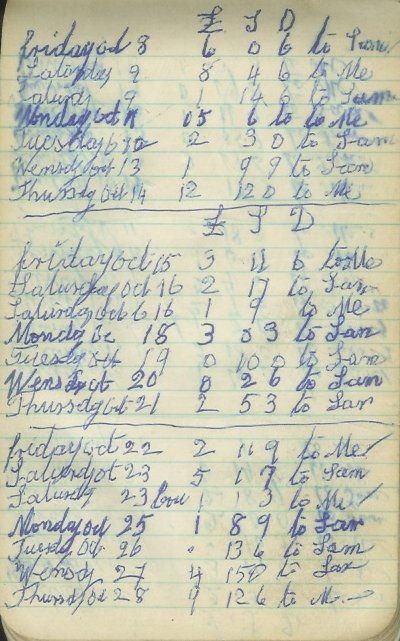 £ S D
Friday oct 8 6 0 6 to Sam
Saturday 9 8 4 6 to Me
Saturdy 9 1 14 6 to Sam
Monday oct 11 15 6 to to Me
Tuesday 12 2 3 0 to Sam
Wensdy oct 13 1 9 9 to Sam
Thursdy oct 14 12 12 0 to Me
£ S D
Friday oct 15 3 11 6 to Me
Saturday oct 16 2 17 to Sam
Saturday oct 16 1 9 to Me
Mondy oc 18 3 0 3 to Sam
Tuesdy oct 19 0 10 0 to Sam
Wensdy oct 20 0 2 6 to Sam
Thursdy oct 21 2 5 3 to Sam
Friday oct 22 2 11 9 to Me
Saturdy oct 23 5 1 7 to Sam
Saturdy 23 1 1 3 to Me
Monday oct 25 1 8 9 to Sam
Tuesdy oct 26 . 13 6 to Sam
Wensdy 27 4 15 0 to Sam
Thursdy oct 28 9 12 6 to M